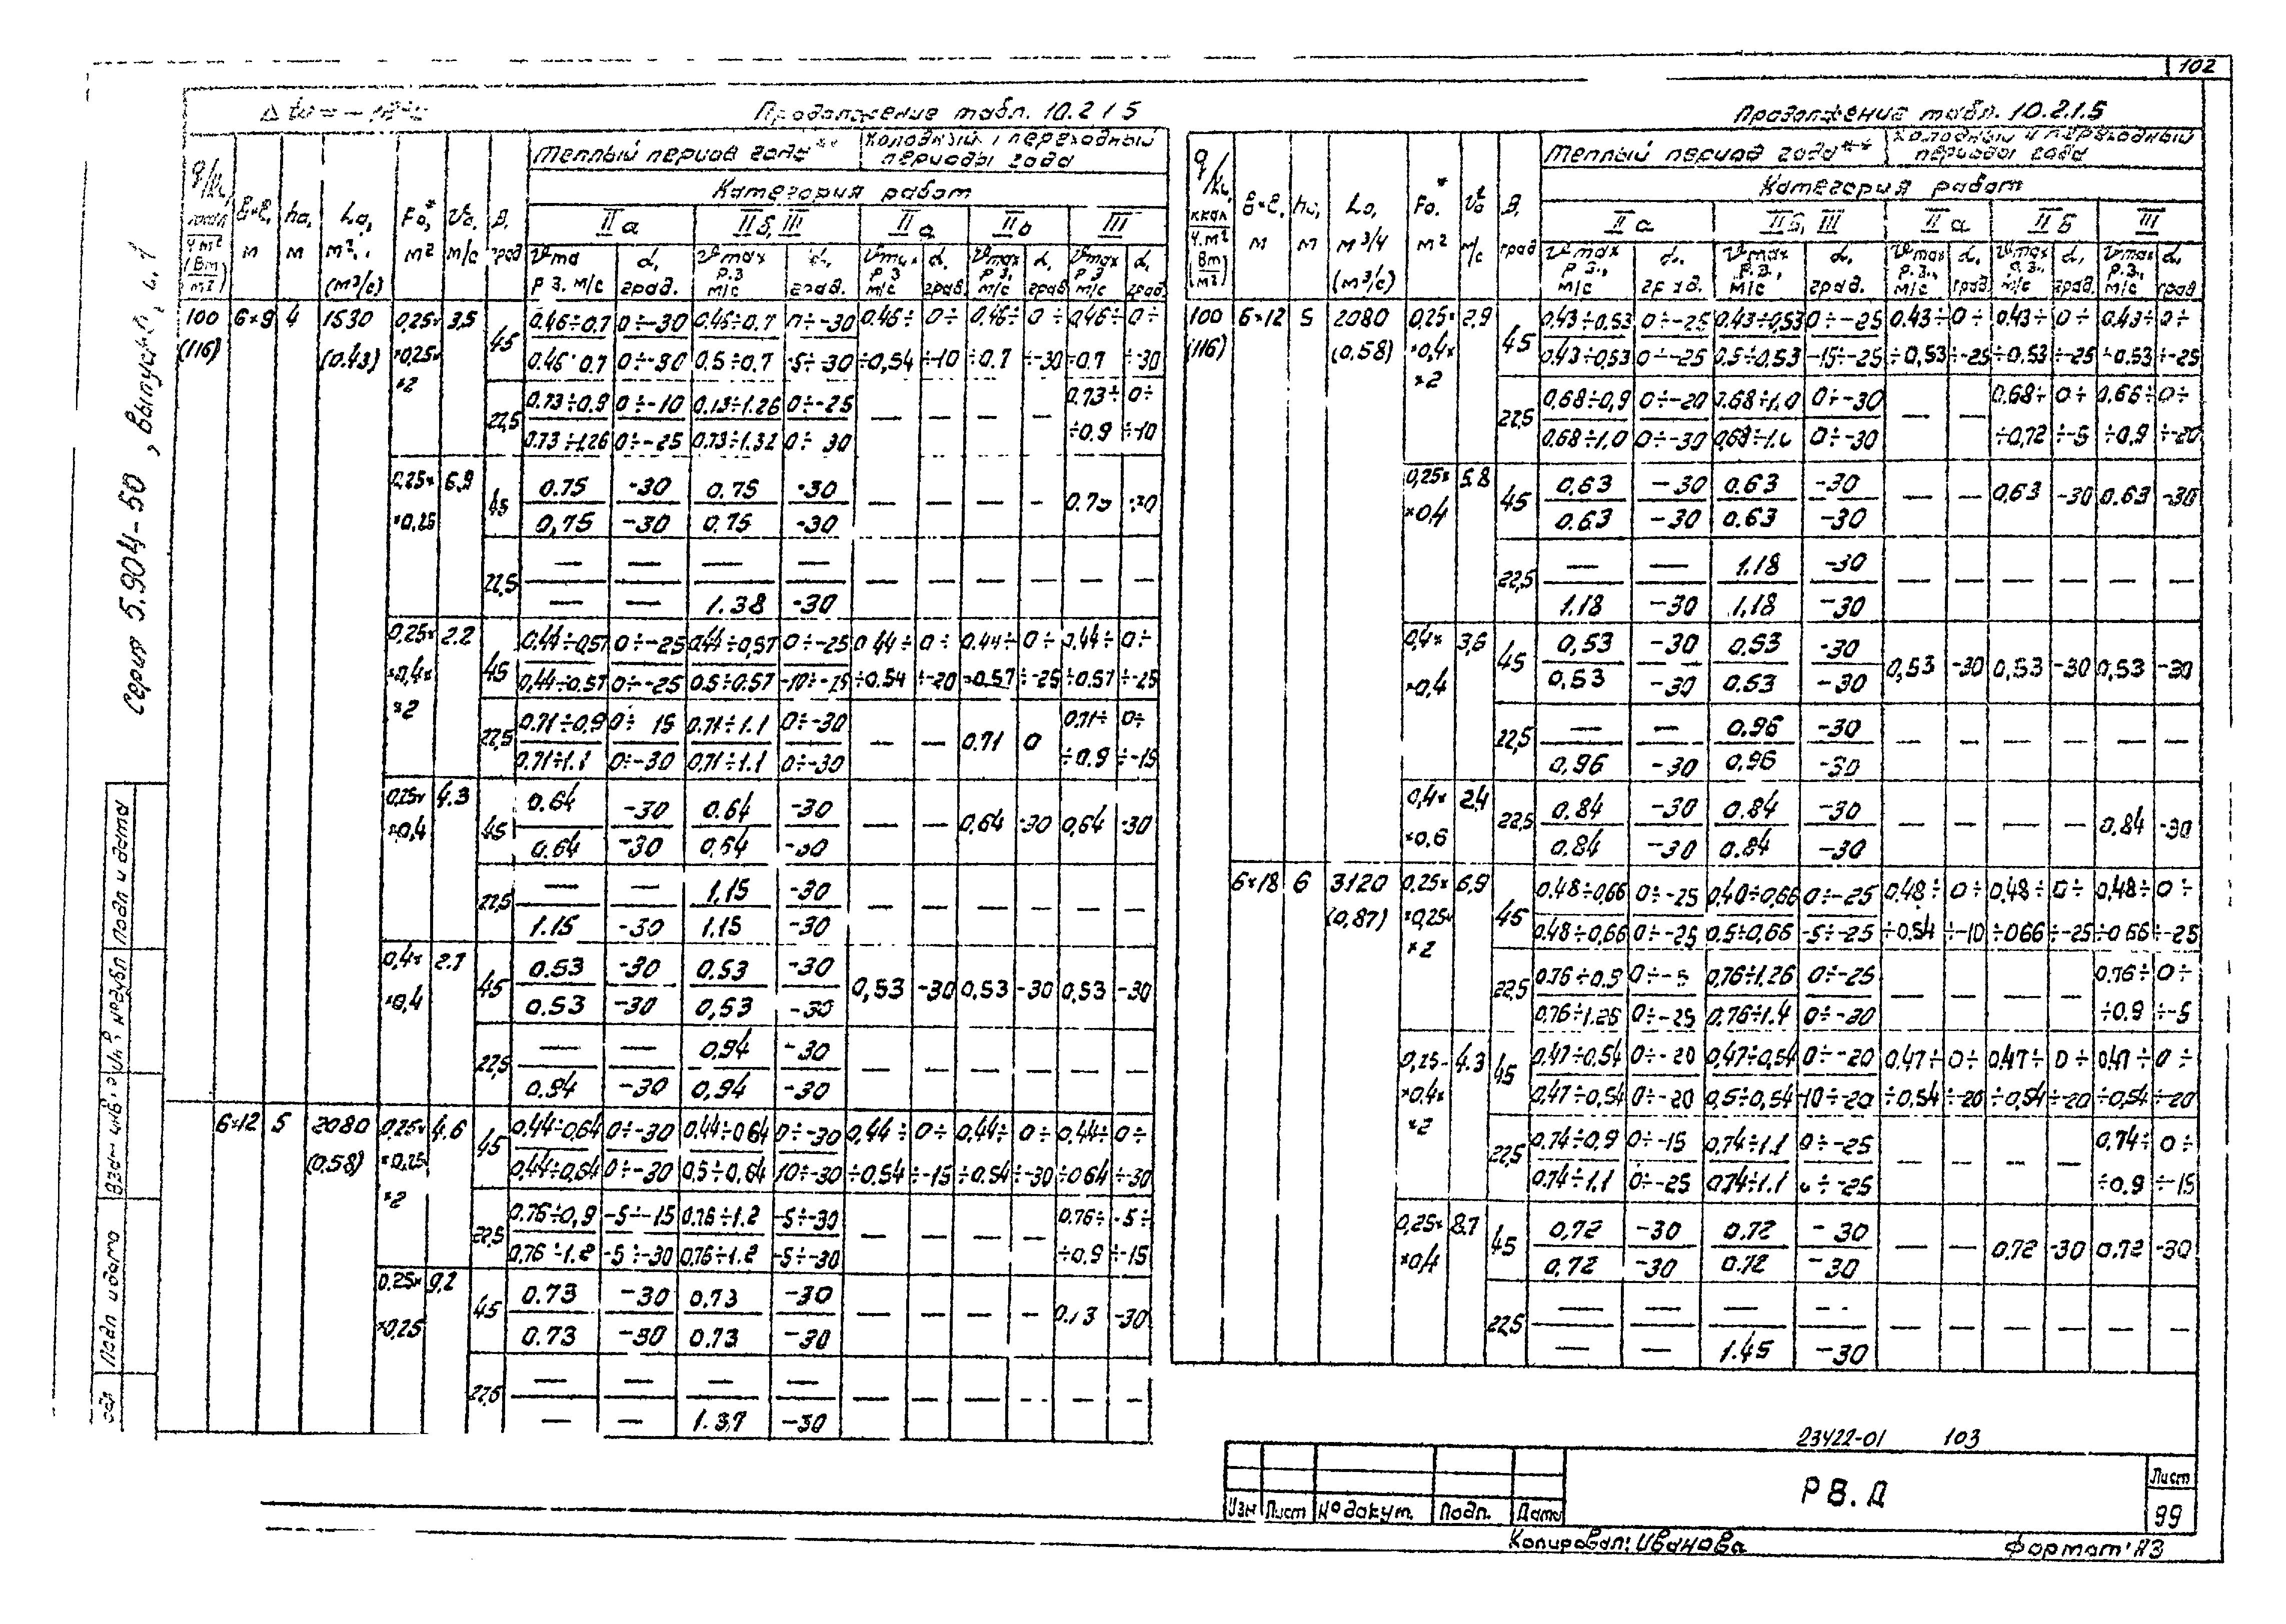 102
Продолжение табл. 10.2.1.5
Теплый период года** Холодный и переходный периоды года
Категория работ
q/kц, ккал/ч.м² (Вт/м²) в×ℓ, м hо, м Lо, м³/ч (м³/с) Fо*, м² vо, м/с β, град
IIа IIб, III IIа IIб III
100 (116) 6×9 4 1530 (0.43) 0,25× ×0,25× ×2 3,5 45
0.46÷0.7 0÷-30 0.46÷0.7 0÷-30 0.46÷ 0÷ 0.46÷ 0÷ 0,46÷ 0÷
0.46÷0.7 0÷-30 0.5÷0.7 -5÷-30 ÷0,54 ÷-10 ÷0.7 ÷-30 ÷0.7 ÷-30
22,5 0.73÷0.9 0÷-10 0.73÷1.26 0÷-25 — — — — 0.73÷ 0÷
0.73÷1.26 0÷-25 0.73÷1.32 0÷-30 ÷0.9 ÷-10
0,25× ×0,25 6,9 45 0.75 -30 0.75 -30 — — — — 0.75 -30
0,75 -30 0.75 -30
22,5 — — — — — — — — — —
— — 1.38 -30
0,25× ×0,4× ×2 2.2 45 0,44÷0,57 0÷-25 0,44÷0,57 0÷-25 0.44÷ 0÷ 0.44÷ 0÷ 0,44÷ 0÷
0,44÷0.57 0÷-25 0.5÷0.57 -10÷-25 ÷0.54 ÷-20 ÷0.57 ÷-25 ÷0.57 ÷-25
22,5 0.71÷0,9 0÷ 15 0.71÷1.1 0÷-30 — — 0.71 0 0.71÷ 0÷
0.71÷1.1 0÷-30 0,71÷1.1 0÷-30 ÷0.9 ÷-15
0,25× ×0,4 4.3 45 0.64 -30 0.64 -30 — — 0,64 -30 0,64 -30
0.64 -30 0,64 -30
22,5 — — 1,15 -30 — — — — — —
1.15 -30 1.15 -30
0,4× ×0,4 2.7 45 0.53 -30 0.53 -30 0,53 -30 0.53 -30 0,53 -30
0.53 -30 0,53 -30
22,5 — — 0,94 -30 — — — — — —
0.94 -30 0,94 -30
6×12 5 2080 (0.58) 0,25× ×0,25 ×2 4.6 45
0,44÷0,64 0÷-30 0.44÷0.64 0÷-30 0,44÷ 0÷ 0,44÷ 0÷ 0,44÷ 0÷
0,44÷0,64 0÷-30 0,5÷0,64 10÷-30 ÷0.54 ÷-15 ÷0.54 ÷-30 ÷0.64 ÷-30
22,5 0.76÷0,9 -5÷-15 0.76÷1.2 -5÷-30 — — — — 0.76÷ -5÷
0,76÷1.2 -5÷-30 0,76÷1.2 -5÷-30 ÷0.9 ÷-15
0,25× ×0,25 9,2 45 0.73 -30 0.73 -30 — — — — -30
0.73 -30 0.73 -30
22,5 — — — — — — — — — —
— — 1.37 -30
Продолжение табл. 10.2.1.5
Теплый период года** Холодный и переходный периоды года
Категория работ
q/kц, ккал/ч.м² (Вт/м²) в×ℓ, м hо, м Lо, м³/ч (м³/с) Fо*, м² vо, м/с β, град
IIа IIб, III IIа IIб III
vmax р.з., м/с α, град. vmax р.з., м/с α, град. vmax р.з., м/с α, град. vmax р.з., м/с α, град. vmax р.з., м/с α, град
100 (116) 6×12 5 2080 (0,58) 0,25× ×0,4× ×2 2,9 45
0.43÷0.53 0÷-25 0.43÷0,53 0÷-25 0.43÷ 0÷ 0.43÷ 0÷ 0.43÷ 0÷
0.43÷0,53 0÷-25 0.5÷0.53 -15÷-25 ÷0,53 ÷-25 ÷0.53 ÷-25 ÷0.53 ÷-25
22,5 0,68÷0,9 0÷-20 0.68÷1,0 0÷-30 — — 0.68÷ 0÷ 0÷
0,68÷1,0 0÷-30 0÷-30 ÷0,72 ÷-5 ÷0,9 ÷-20
0,25× ×0,4 5.8 45 0,63 -30 0.63 -30 — — 0,63 -30 0.63 -30
0.63 -30 0.63 -30
22,5 — — 1.18 -30 — — — — — —
1.18 -30 1,18 -30
0,4× ×0,4 3,6 45 0,53 -30 0,53 -30 0,53 -30 0,53 -30 0,53 -30
0,53 -30 0.53 -30
22,5 — — 0.96 -30 — — — — — —
0,96 -30 0,96 -30
0,4× ×0,6 2.4 22,5 0,84 -30 0.84 -30 — — — — 0,84 -30
0,84 -30 0.84 -30
6×18 6 3120 (0,87) 0,25× ×0,25× ×2 6,9 45
0.48÷0,66 0÷-25 0,40÷0,66 0÷-25 0,48÷ 0÷ 0,48÷ 0÷ 0,48÷ 0÷
0.48÷0,66 0÷-25 0.5÷0,66 -5÷-25 ÷0,54 ÷-10 ÷066 ÷-25 ÷0 66 ÷-25
22,5 0.76÷0.9 0÷-5 0,76÷1,26 0÷-25 — — — — 0.76÷ 0÷
0,76÷1.26 0÷-25 0.76÷1.4 0÷-30 ÷0.9 ÷-5
0,25× ×0,4× ×2 4.3 45 0,47÷0.54 0÷-20 0,47÷0,54 0÷-20 0.47÷ 0÷ 0.47÷ 0÷ 0.47÷ 0÷
0,47÷0,54 0÷-20 0,5÷0,54 -10÷-20 ÷0,54 ÷-20 ÷0,54 ÷-20 ÷0,54 ÷-20
22,5 0.74÷0,9 0÷-15 0,74÷1.1 0÷-25 — — — — 0,74÷ 0÷
0.74÷1.1 0÷-25 0,74÷1.1 ÷-25 ÷0.9 ÷-15
0,25× ×0,4 8.7 45 0,72 -30 0.72 -30 — — 0,72 -30 0.72 -30
0,72 -30 0.72 -30
22,5 — — — — — — — — — —
— — 1.45 -30
серия 5.904-50, выпуск
Подп и дата
Подп и дата
23422-01 103
Р В. Д
Лист
99
Изм Лист № докум. Подп. Дата
Копировал: Иванова Формат: А3